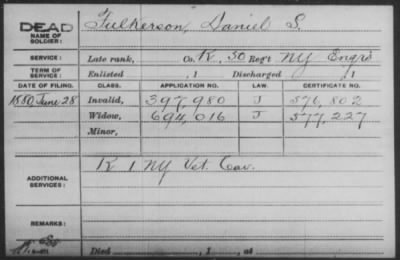 DEAD Fulkerson, Daniel S.
NAME OF SOLDIER:
SERVICE: Late rank, Co. K, 50 Reg't NY Engrs
TERM OF SERVICE: Enlisted , 1 Discharged , 1
DATE OF FILING. CLASS. APPLICATION NO. LAW. CERTIFICATE NO.
1880, June 28 Invalid, 397,980 J 376,802
Widow, 694,016 J 577,227
Minor,
ADDITIONAL SERVICES: K 1 NY Vet. Cav.
REMARKS:
Died , 1 , at